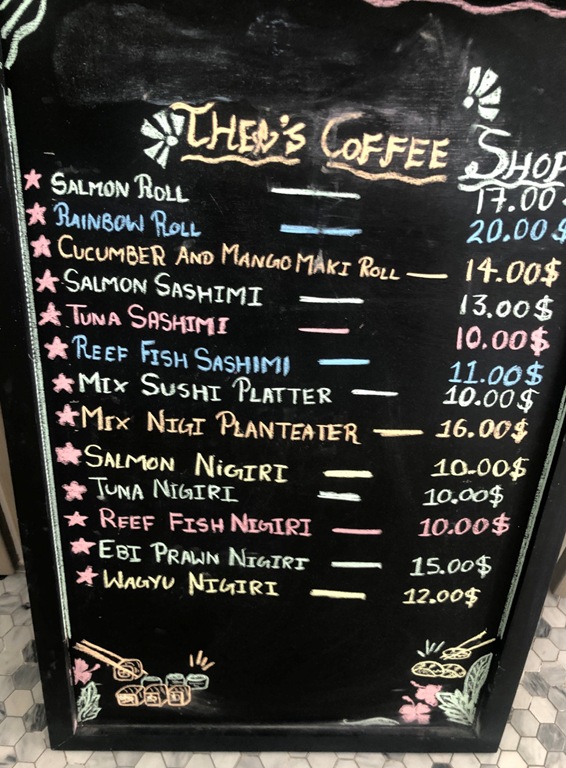 THEO'S COFFEE SHOP
SALMON ROLL — 17.00$
RAINBOW ROLL — 20.00$
CUCUMBER AND MANGO MAKI ROLL — 14.00$
SALMON SASHIMI — 13.00$
TUNA SASHIMI — 10.00$
REEF FISH SASHIMI — 11.00$
MIX SUSHI PLATTER — 10.00$
MIX NIGI PLANTEATER — 16.00$
SALMON NIGIRI — 10.00$
TUNA NIGIRI — 10.00$
REEF FISH NIGIRI — 10.00$
EBI PRAWN NIGIRI — 15.00$
WAGYU NIGIRI — 12.00$